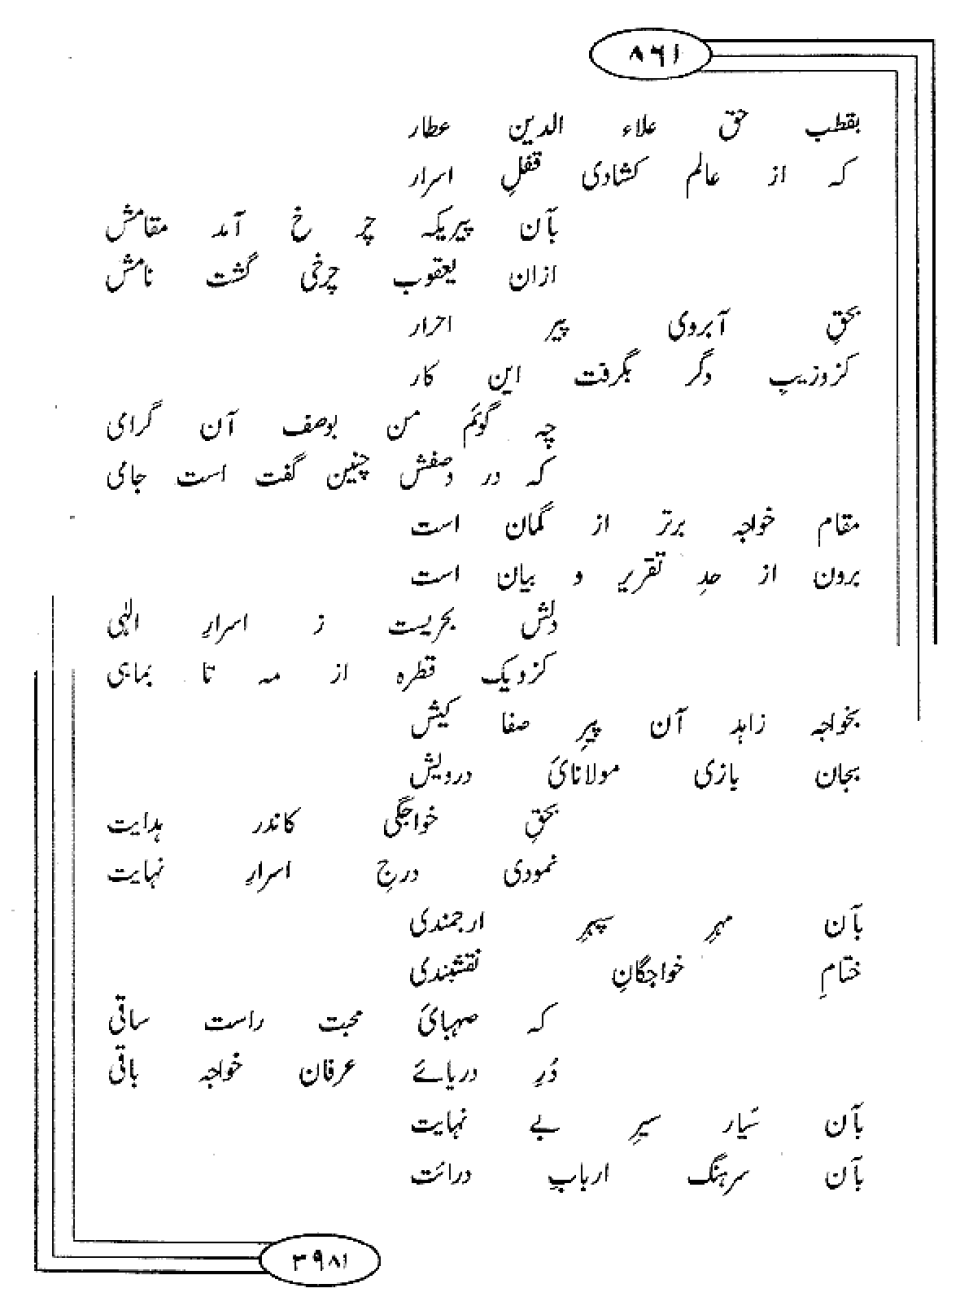 ۸۶۱
بقطب حق علاء الدین عطار
کہ از عالم کشادی قفلِ اسرار
بآن پیریکہ چر خ آمد مقامش
ازان یعقوب چرخی گشت نامش
بحقِ آبروی پیر احرار
کزوزیبِ دگر بگرفت این کار
چہ گوئم من بوصف آن گرای
کہ در وصفش چنین گفت است جای
مقام خواجہ برتر از گمان است
برون از حدِ تقریر و بیان است
دلش بحریست ز اسرارِ الٰہی
کزو یک قطرہ از مہ تا بماہی
بخواجہ زاہد آن پیرِ صفا کیش
بجان بازی مولانائ درویش
بحقِ خواجگی کاندر ہدایت
نمودی درجِ اسرارِ نہایت
بآن مہرِ سپہرِ ارجمندی
ختامِ خواجگانِ نقشبندی
کہ صہبائ محبت راست ساقی
دُرِ دریائے عرفان خواجہ باقی
بآن سَیار سیرِ بے نہایت
بآن سرہنگ اربابِ درائت
۳۹۸۱